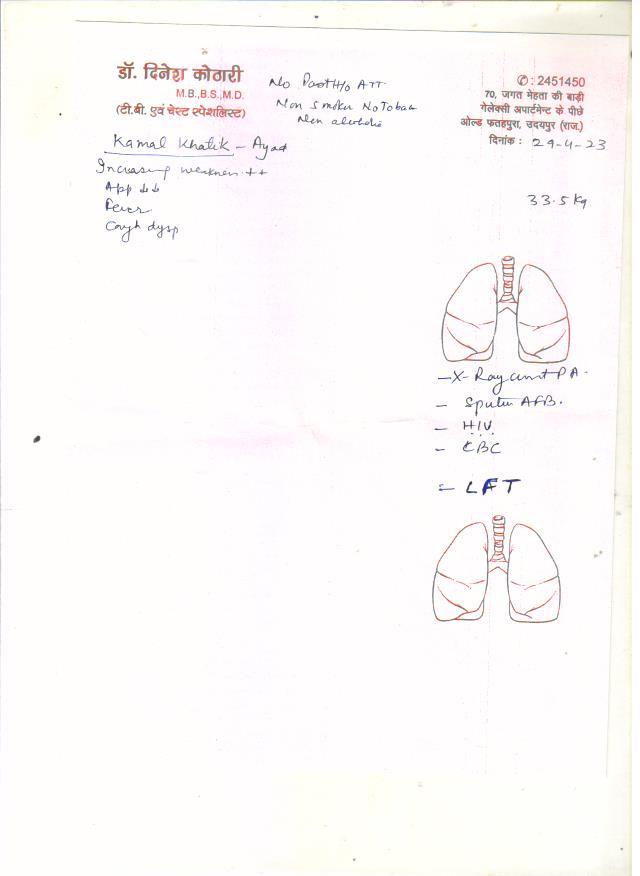 डॉ. दिनेश कोठारी
M.B.,B.S.,M.D.
(टी.बी. एवं चेस्ट स्पेशलिस्ट)
No Past H/o ATT
Non Smoker No Tobacco
Non alcoholic
✆ : 2451450
70, जगत मेहता की बाड़ी
गेलेक्सी अपार्टमेन्ट के पीछे
ओल्ड फतहपुरा, उदयपुर (राज.)
दिनांक : 29-4-23
Kamal Khatik - Ayad
Increasing weakness ++
App ↓↓
Fever
Cough dysp
33.5 Kg
- X-Ray chest PA.
- Sputum AFB.
- HIV
- CBC
- LFT